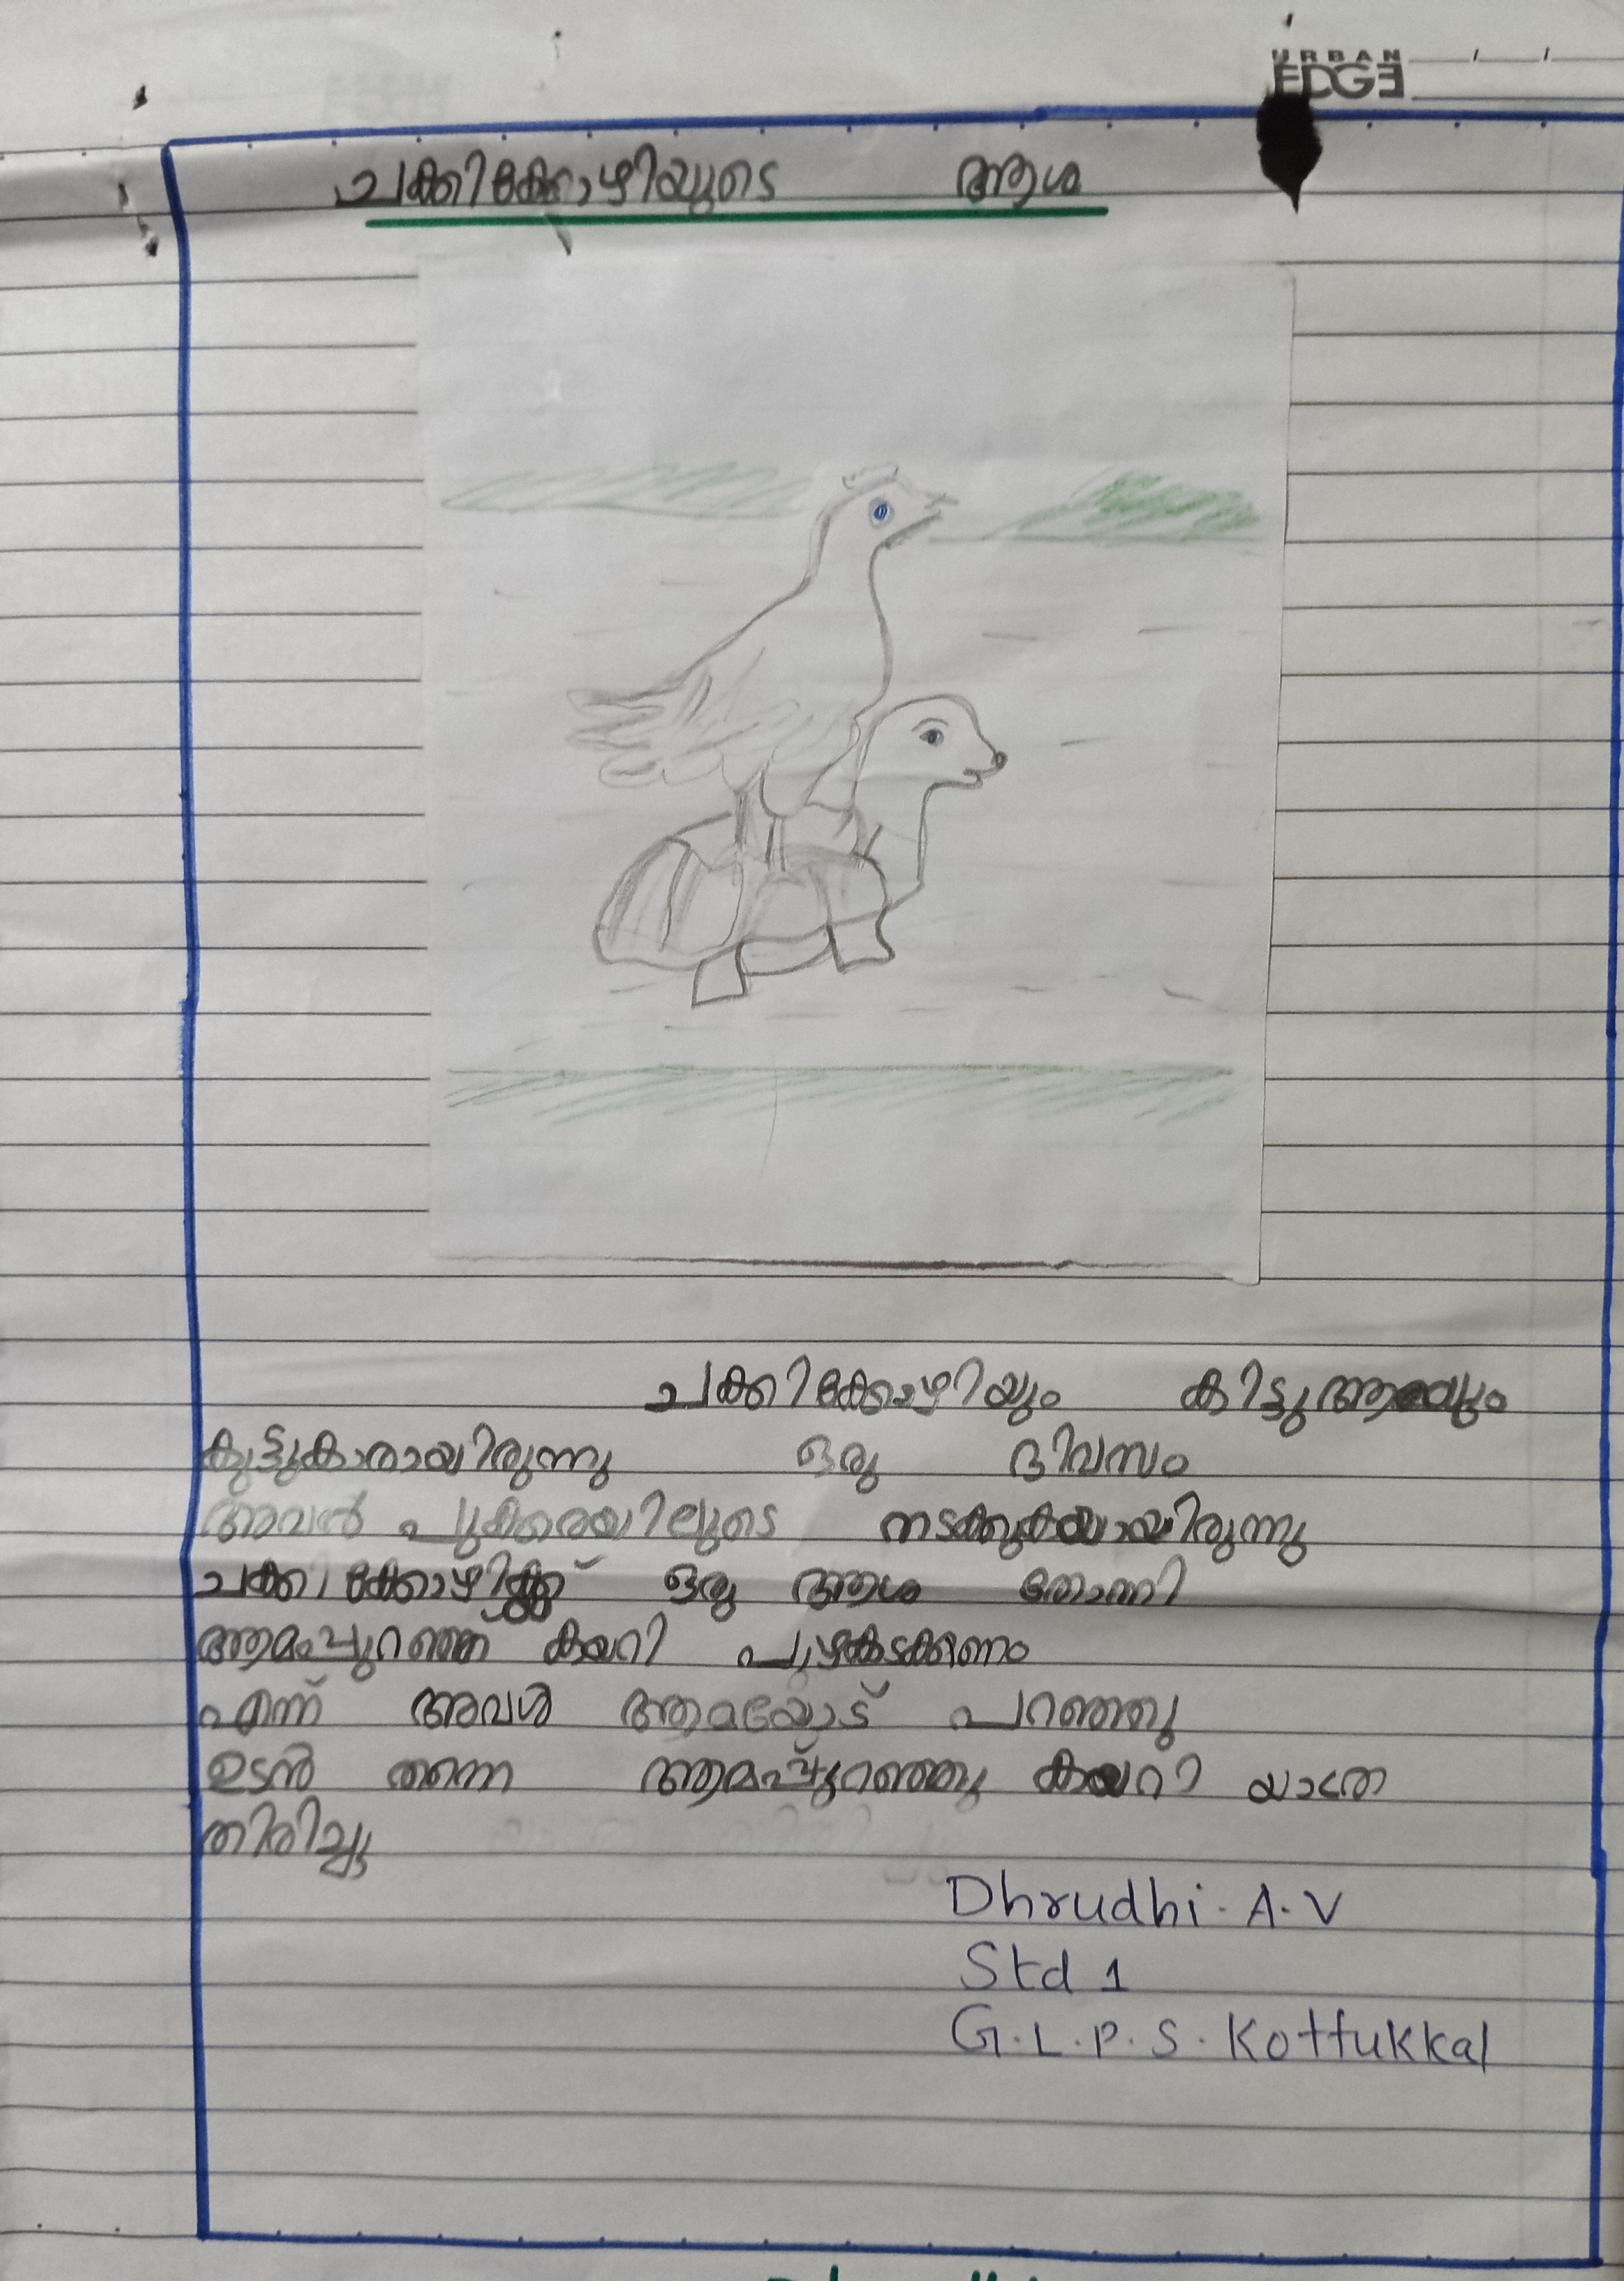 URBAN
EDGE
ചക്കിക്കോഴിയുടെ ആശ
ചക്കിക്കോഴിയും കിട്ടുആമയും
കുട്ടുകാരായിരുന്നു ഒരു ദിവസം
അവൻ പുക്കരയിലുടെ നടക്കുകയായിരുന്നു
ചക്കിക്കോഴിക്ക് ഒരു ആശ തോന്നി
ആമപ്പുറഞ്ഞ കയറി പുഴകടക്കണം
എന്ന് അവൾ ആമയോട് പറഞ്ഞു
ഉടൻ തന്നെ ആമപ്പുറഞ്ഞു കയറി യാത്ര
തിരിച്ചു
Dhrudhi. A. V
Std 1
G. L. P. S. Kottukkal